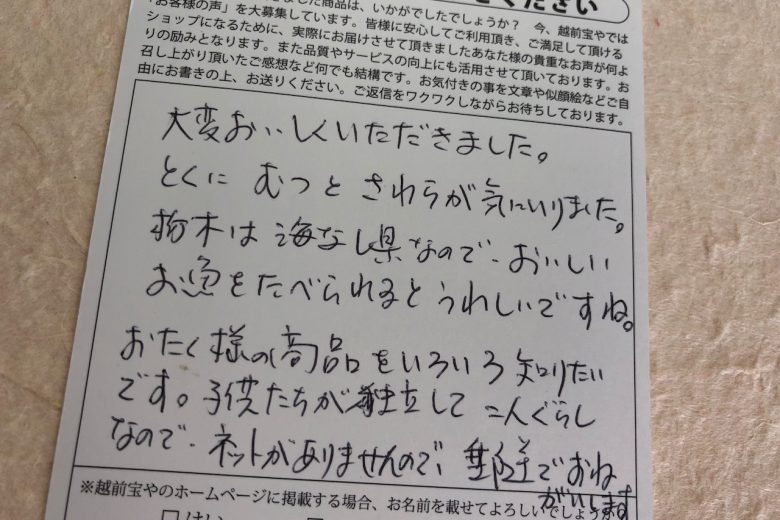 ください
ました商品は、いかがでしたでしょうか？ 今、越前宝やでは
「お客様の声」を大募集しています。皆様に安心してご利用頂き、ご満足して頂ける
ショップになるために、実際にお届けさせて頂きましたあなた様の貴重なお声が何よ
りの励みとなります。また品質やサービスの向上にも活用させて頂いております。お
召し上がり頂いたご感想など何でも結構です。お気付きの事を文章や似顔絵などご自
由にお書きの上、お送りください。ご返信をワクワクしながらお待ちしております。
大変おいしくいただきました。
とくに むつと さわらが気にいりました。
栃木は 海なし県なので、おいしい
お魚をたべられるとうれしいですね。
おたく様の商品をいろいろ知りたい
です。子供たちが独立して 二人ぐらし
なので、ネットがありませんので、郵送でおね
がいします
※越前宝やのホームページに掲載する場合、お名前を載せてよろしいでしょうか
□はい